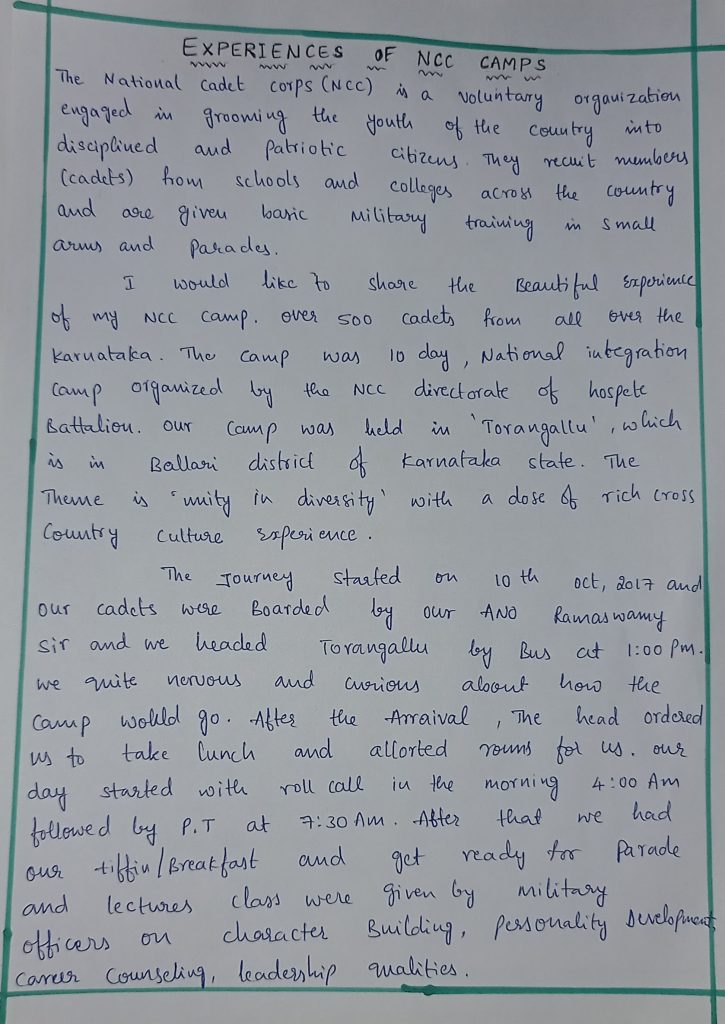 EXPERIENCES OF NCC CAMPS
The National cadet corps (NCC) is a voluntary organization
engaged in grooming the youth of the country into
disciplined and Patriotic citizens. They recuit members
(cadets) from schools and colleges across the country
and are given basic Military training in small
arms and Parades.
I would like to share the Beautiful Experience
of my NCC camp. over 500 cadets from all over the
Karnataka. The camp was 10 day, National integration
Camp organized by the NCC directorate of hospete
Battalion. our Camp was held in 'Torangallu', which
is in Ballari district of Karnataka state. The
Theme is 'unity in diversity' with a dose of rich cross
Country Culture Experience.
The Journey started on 10 th oct, 2017 and
our cadets were Boarded by our ANO Ramaswamy
Sir and we headed Torangallu by Bus at 1:00 Pm.
we quite nervous and curious about how the
Camp would go. After the Arraival, The head ordered
us to take lunch and allorted rooms for us. our
day started with roll call in the morning 4:00 Am
followed by P.T at 7:30 Am. After that we had
our tiffin/Breakfast and get ready for Parade
and lectures class were given by military
officers on character Building, Personality Development,
Career Counseling, leadership qualities.